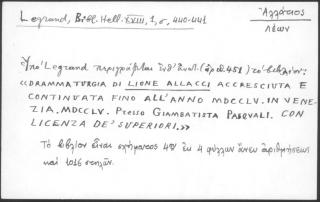 Legrand, Bibl. Hell. XVIII, 1, σ. 440-441
Ἀλλάτιος
Λέων
Ὑπὸ Legrand περιγράφεται ὑπ' ἀριθ. 451) τὸ βιβλίον:
«DRAMMATURGIA DI LIONE ALLACCI ACCRESCIUTA E
CONTINUATA FINO ALL'ANNO MDCCLV. IN VENE-
ZIA. MDCCLV. Presso GIAMBATISTA PASQUALI. CON
LICENZA DE' SUPERIORI.»
Τὸ βιβλίον εἶναι σχήματος 4ου ἐκ 4 φύλλων ἄνευ ἀριθμήσεως
καὶ 1016 στηλῶν.